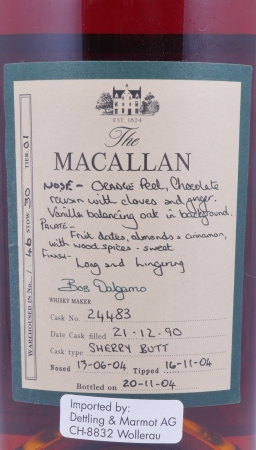 EST. 1824
The
MACALLAN
NOSE - ORANGE Peel, Chocolate
raisin with cloves and ginger.
Vanilla balancing oak in background.
PALATE -
Fruit dates, almonds & cinnamon,
with wood spices - sweet
FINISH -
Long and lingering
Bob Dalgarno
WHISKY MAKER
Cask No. 24483
Date Cask filled 21-12-90
Cask type SHERRY BUTT
Nosed 13-06-04 Tipped 16-11-04
Bottled on 20-11-04
WAREHOUSED IN No. 46 STOW. 30 TIER. 01
Imported by:
Dettling & Marmot AG
CH-8832 Wollerau